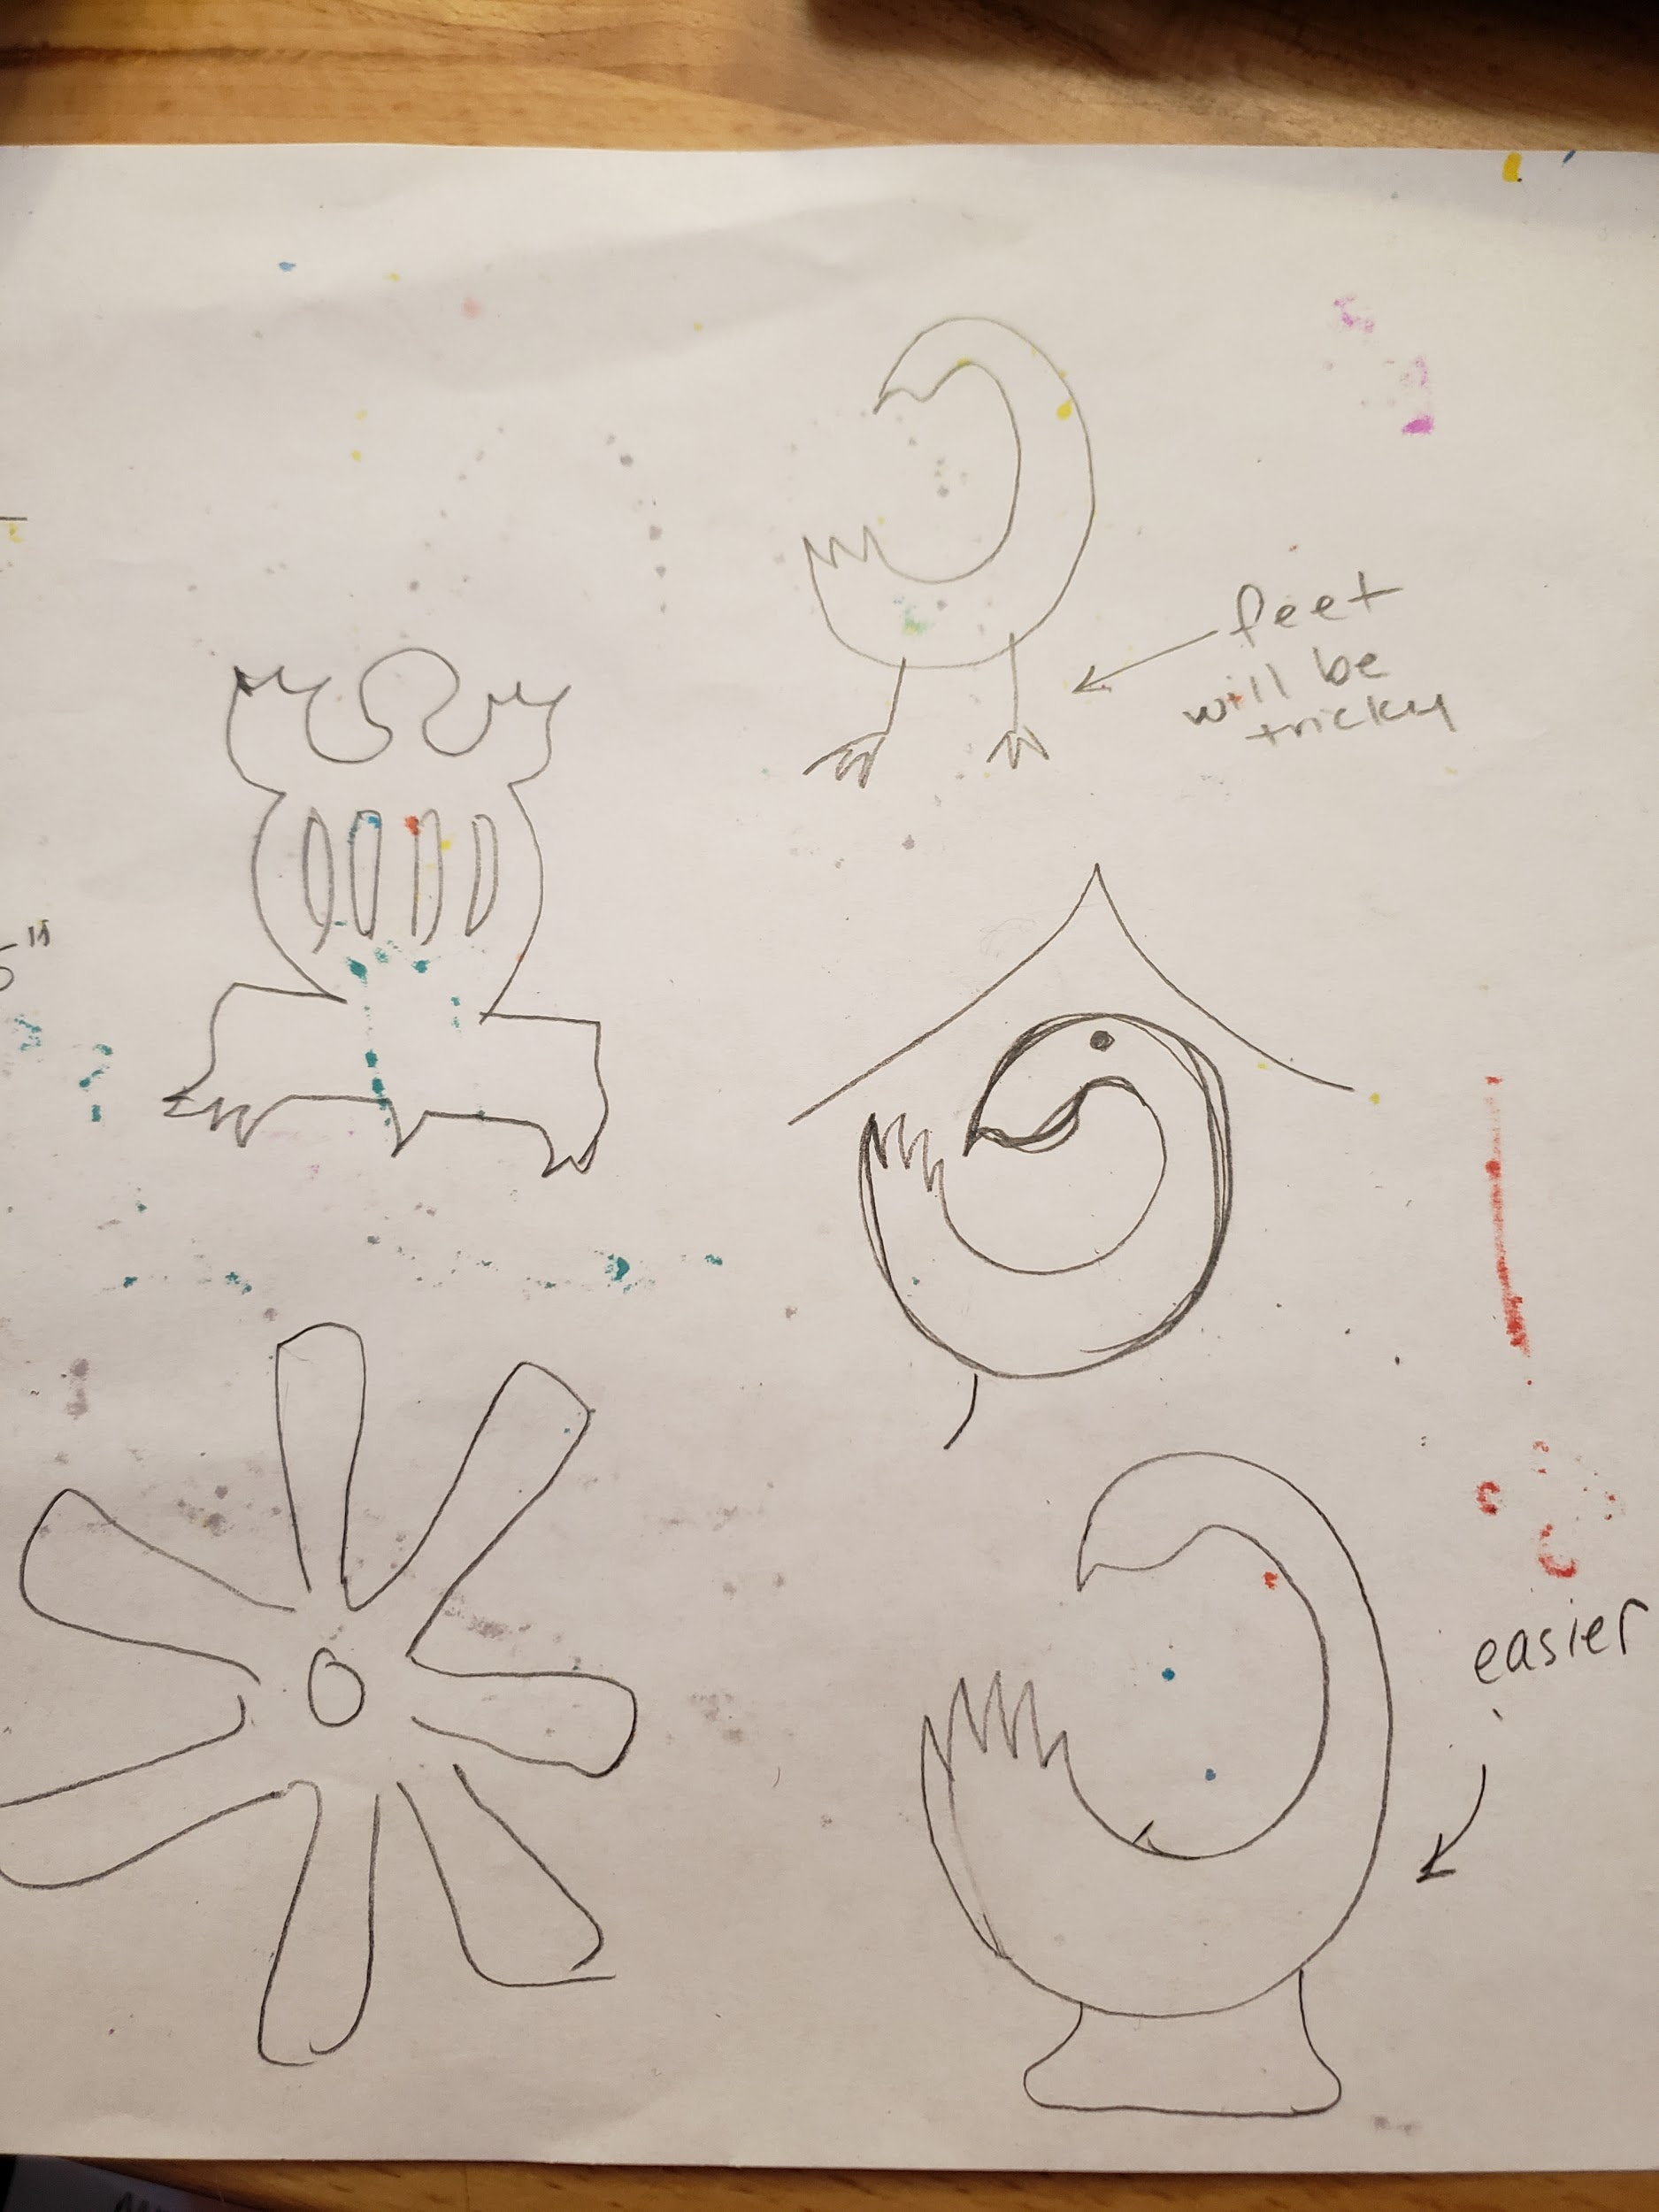 feet
will be
tricky
5"
easier